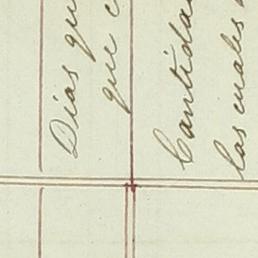 Dias qu
que c
Cantida
las cuales